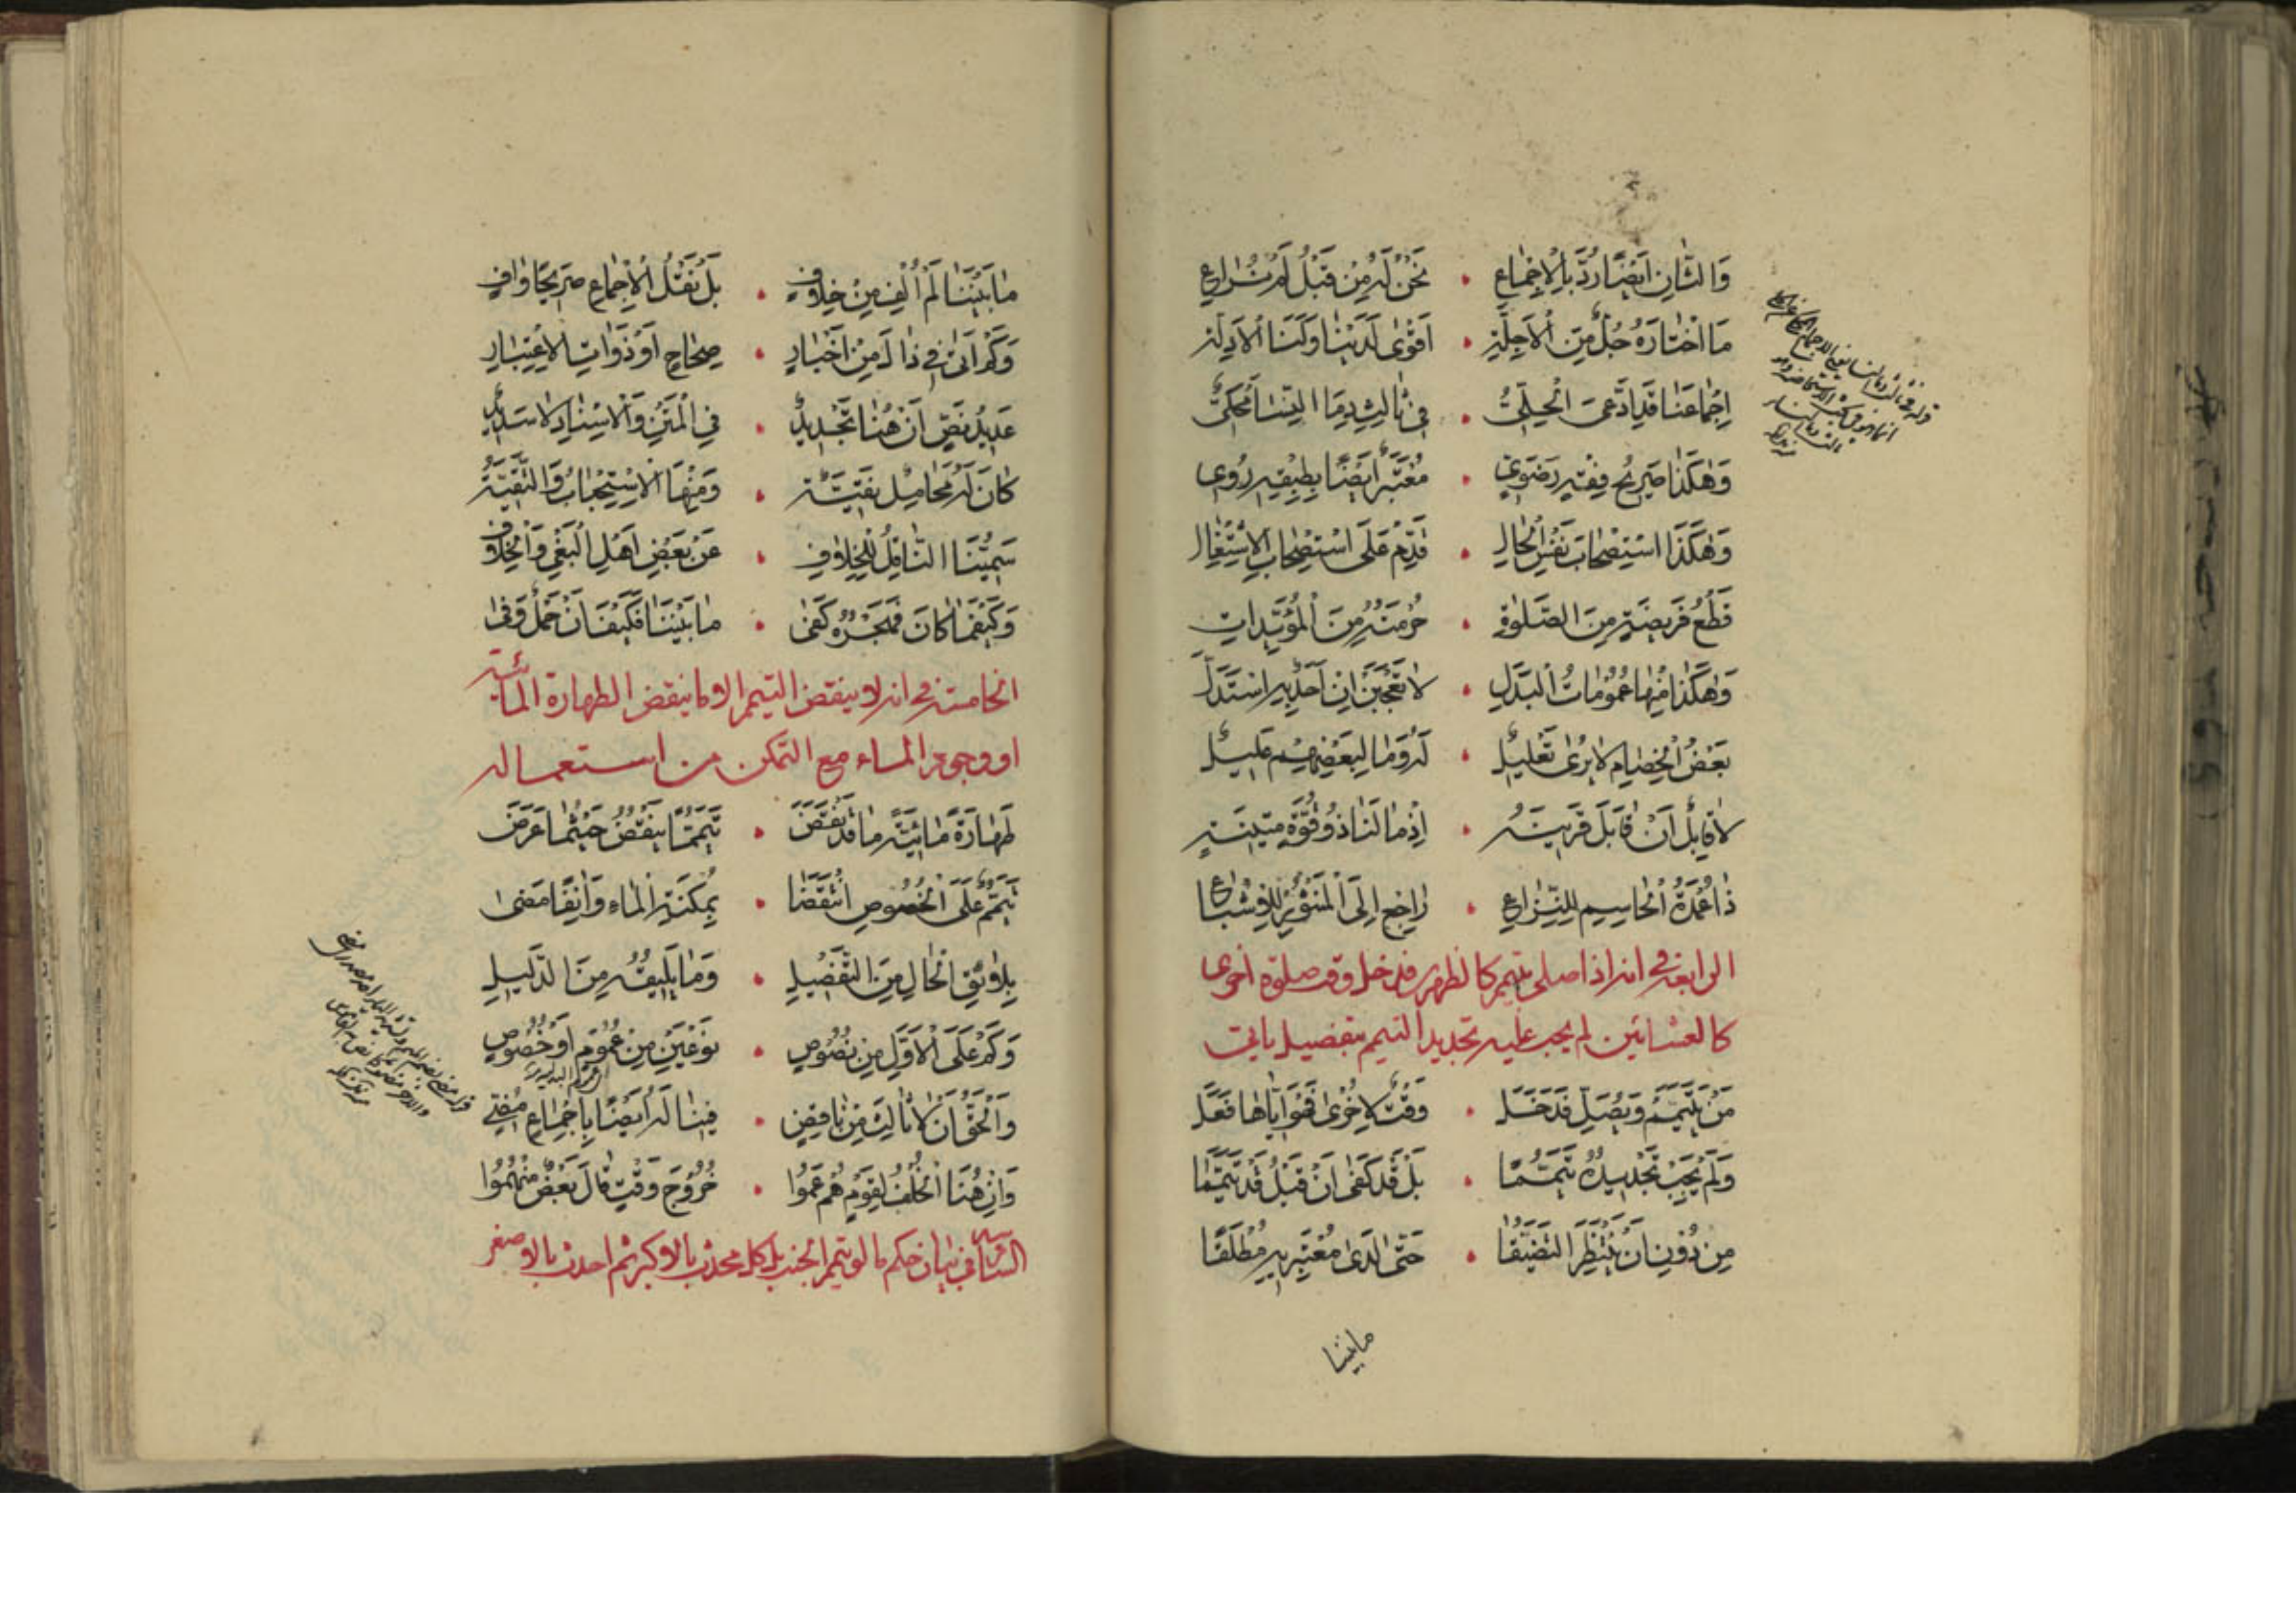 وَالثَّانِ اَيْضًا رُدَّ بِالْاِجْمَاعِ • نَحْنُ لَهُ مِنْ قَبْلُ لَمْ نُرَاعِ
مَا اخْتَارَهُ جُلٌّ مِنَ الْاَجِلَّةِ • اَقْوٰى لَدَيْنَا وَلَنَا الْاَدِلَّةُ
اِجْمَاعَنَا قَدِ ادَّعَى الْحِلِّيُّ • فِي ثَالِثٍ
وَهٰكَذَا صَرِيحُ فِقْهٍ رَضَوِيٍّ • مُعْتَبَرٌ اَيْضًا بِطِبْقِهِ رُوِي
وَهٰكَذَا اسْتِصْحَابَ نَفْسِ الْحَالِ • قَدِّمْ عَلَى اسْتِصْحَابِ الْاِشْتِغَالِ
قَطْعُ فَرِيضَةٍ مِنَ الصَّلٰوةِ • حُرْمَتُهُ مِنَ الْمُؤَيِّدَاتِ
وَهٰكَذَا مِنْهَا عُمُومَاتُ الْبَدَلِ • لَا تَعْجَبَنْ اِنْ اَحَدٌ بِهِ اسْتَدَلَّ
بَعْضُ الْخِصَامِ لَا يُرٰى تَعْلِيلُ • لَهُ وَمَا لِبَعْضِهِمْ عَلِيلُ
لَا قَابِلٌ اَنْ قَابَلَ قَرِينَتُهُ • اِذْ مَا لَنَا ذُو قُوَّةٍ مَتِينَةٍ
ذَا عُمْدَةُ الْحَاسِمِ لِلنِّزَاعِ • رَاجِعْ اِلَى الْمَنْثُورِ لِلْاِشْبَاعِ
الرابعة في انه اذا صلى بتيمم كالظهر فدخل وقت صلوة اخرى
كالعشائين لم يجب عليه تجديد التيمم بتفصيل ياتى
مَنْ يَتَيَمَّمْ وَيُصَلِّ فَدَخَلْ • وَقْتٌ لِاُخْرٰى فَهْوَ اِيَّاهَا فَعَلْ
وَلَمْ يَجِبْ تَجْدِيدُهُ تَيَمُّمًا • بَلْ قَدْ كَفٰى اَنْ قَبْلُ قَدْ تَيَمَّمَا
مِنْ دُونِ اَنْ يَنْتَظِرَ التَّضَيُّقَا • حَتّٰى لَدٰى مُعْتَبِرٍ بِهِ مُطْلَقًا
مابيننا
مَا بَيْنَنَا لَمْ اُلْفِ مِنْ خِلَافِ • بَلْ نَقْلُ الْاِجْمَاعِ صَرِيحًا وَافِ
وَكَمْ اَتٰى فِي ذَاكَ مِنْ اَخْبَارِ • صِحَاحٍ اَوْ ذَوَاتِ الْاِعْتِبَارِ
عَدِيلُ نَصٍّ اَنْ هُنَا تَجْدِيدُ • فِي الْمَتْنِ وَالْاِسْنَادِ لَا سَدِيدُ
كَانَ لَهُ مَحَامِلٌ بَقِيَّةُ • وَمِنْهَا الْاِسْتِحْبَابُ وَالتَّقِيَّةُ
سَمِيُّنَا النَّاقِلُ لِلْخِلَافِ • عَنْ بَعْضِ اَهْلِ الْبَغْيِ وَالْخِلَافِ
وَكَيْفَمَا كَانَ فَهَجْرُهُ كَفٰى • مَا بَيْنَنَا فَكَيْفَ اَنْ حَمْلٌ وَفٰى
الخامسة في انه لا ينقض التيمم الا ما ينقض الطهارة المائية
او وجود الماء مع التمكن من استعماله
طَهَارَةً مَائِيَّةً مَا قَدْ نَقَضْ • تَيَمُّمًا يَنْقُضُ حَيْثُمَا عَرَضْ
تَيَمُّمٌ عَلَى الْخُصُوصِ انْتَقَضَا • بِمُكْنَةِ الْمَاءِ وَاٰنِفًا مَضٰى
بِلَائِقِ الْحَالِ مِنَ التَّفْضِيلِ • وَمَا يَلِيقُهُ مِنَ الدَّلِيلِ
وَكَمْ عَلَى الْاَوَّلِ مِنْ نُصُوصِ • نَوْعَيْنِ مِنْ عُمُومٍ اَوْ خُصُوصِ
وَالْحَقُّ اَنْ لَا ثَالِثٌ مِنْ نَاقِضِ • فِينَا لَهُ اَيْضًا بِاِجْمَاعٍ
وَاِنْ هُنَا الْخُلْفُ لِقَوْمٍ هُمْ عَمُوا • خُرُوجَ وَقْتٍ قَالَ بَعْضٌ مِنْهُمُوا
السادسة في بيان حكم ما لو تيمم الجنب بل كل محدث بالاكبر ثم احدث بالاصغر